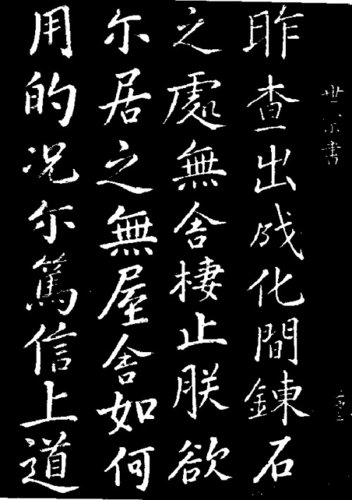 世宗書
昨查出成化間鍊石
之處無舍棲止朕欲
尔居之無屋舍如何
用的况尔篤信上道